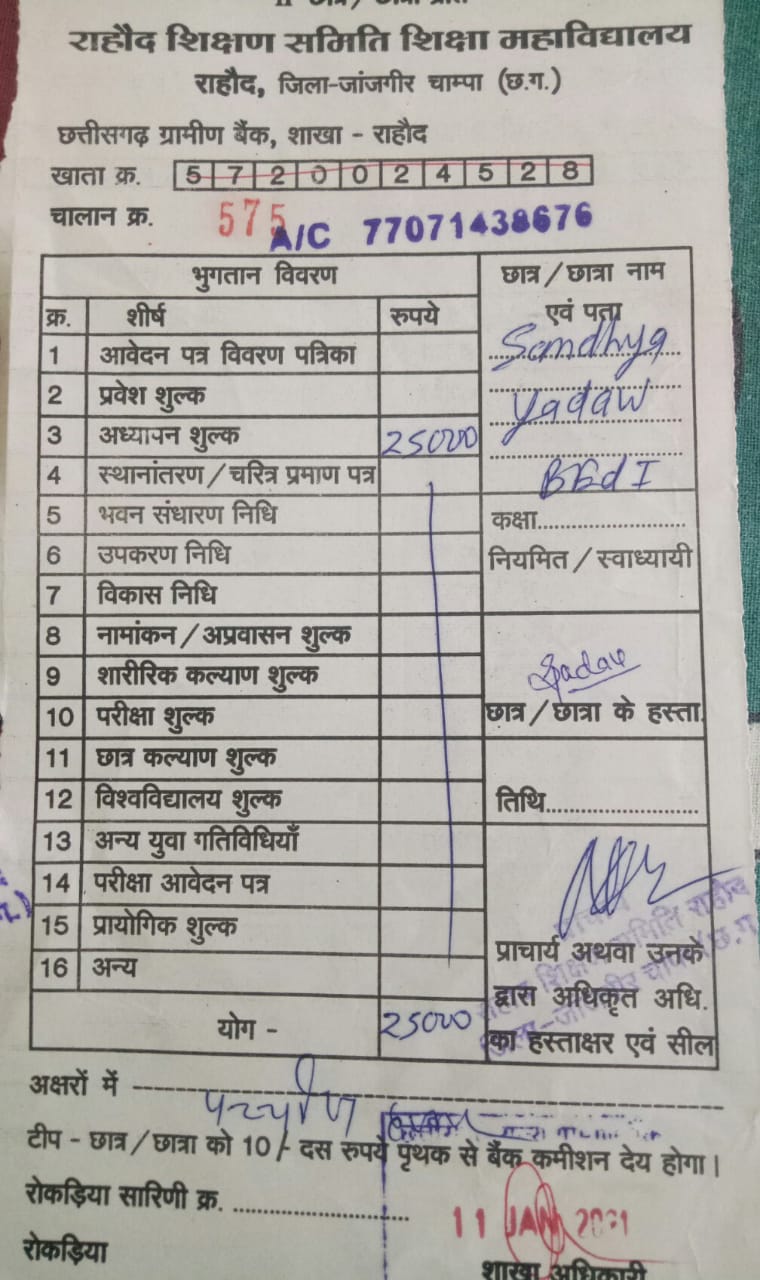 राहौद शिक्षण समिति शिक्षा महाविद्यालय
राहौद, जिला-जांजगीर चाम्पा (छ.ग.)
छत्तीसगढ़ ग्रामीण बैंक, शाखा - राहौद
खाता क्र. 5 7 2 0 0 2 4 5 2 8
चालान क्र. 575
A/C 77071438676
भुगतान विवरण
क्र. शीर्ष रुपये
1 आवेदन पत्र विवरण पत्रिका
2 प्रवेश शुल्क
3 अध्यापन शुल्क 25000
4 स्थानांतरण / चरित्र प्रमाण पत्र
5 भवन संधारण निधि
6 उपकरण निधि
7 विकास निधि
8 नामांकन / अप्रवासन शुल्क
9 शारीरिक कल्याण शुल्क
10 परीक्षा शुल्क
11 छात्र कल्याण शुल्क
12 विश्वविद्यालय शुल्क
13 अन्य युवा गतिविधियाँ
14 परीक्षा आवेदन पत्र
15 प्रायोगिक शुल्क
16 अन्य
योग - 25000
छात्र / छात्रा नाम
एवं पता
Sandhya
Yadaw
BEd I
कक्षा....................
नियमित / स्वाध्यायी
Yadav
छात्र / छात्रा के हस्ता.
तिथि....................
प्राचार्य अथवा उनके
द्वारा अधिकृत अधि.
का हस्ताक्षर एवं सील
अक्षरों में
टीप - छात्र / छात्रा को 10/- दस रुपये पृथक से बैंक कमीशन देय होगा।
रोकड़िया सारिणी क्र. ....................
11 JAN 2021
रोकड़िया
शाखा अधिकारी